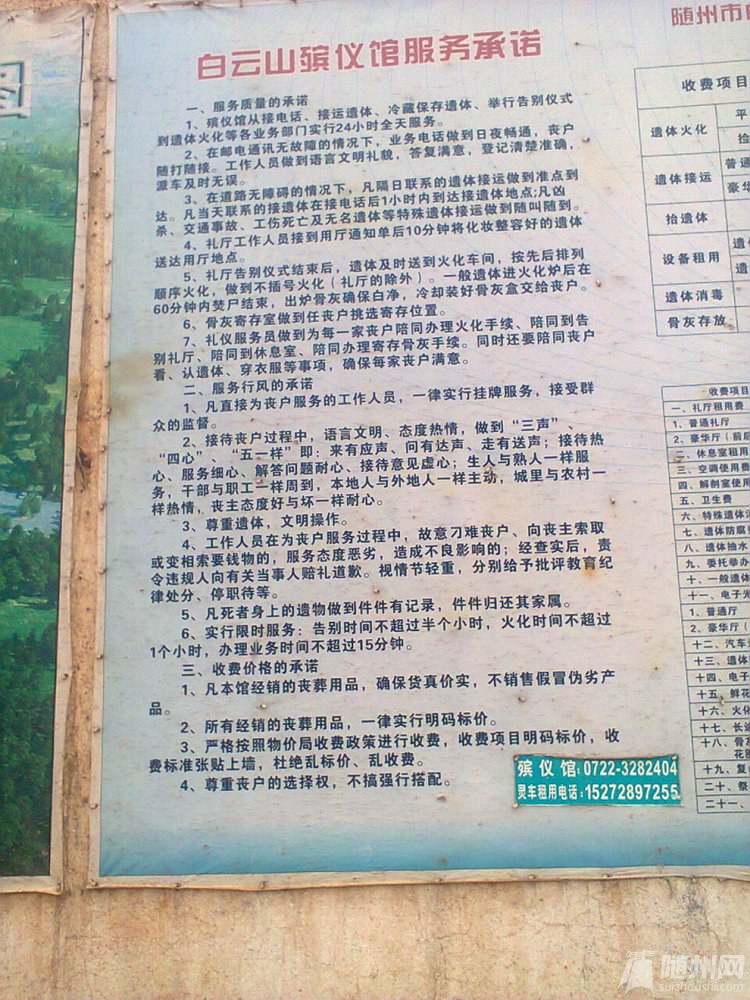 图
白云山殡仪馆服务承诺
一、服务质量的承诺
1、殡仪馆从接电话、接运遗体、冷藏保存遗体、举行告别仪式
到遗体火化等各业务部门实行24小时全天服务。
2、在邮电通讯无故障的情况下，业务电话做到日夜畅通，丧户
随打随接。工作人员做到语言文明礼貌，答复满意，登记清楚准确，
派车及时无误。
3、在道路无障碍的情况下，凡隔日联系的遗体接运做到准点到
达。凡当天联系的接遗体在接电话后1小时内到达接遗体地点;凡凶
杀、交通事故、工伤死亡及无名遗体等特殊遗体接运做到随叫随到。
4、礼厅工作人员接到用厅通知单后10分钟将化妆整容好的遗体
送达用厅地点。
5、礼厅告别仪式结束后，遗体及时送到火化车间，按先后排列
顺序火化，做到不插号火化（礼厅的除外）。一般遗体进火化炉后在
60分钟内焚尸结束，出炉骨灰确保白净，冷却装好骨灰盒交给丧户。
6、骨灰寄存室做到任丧户挑选寄存位置。
7、礼仪服务员做到为每一家丧户陪同办理火化手续、陪同到告
别礼厅、陪同到休息室、陪同办理寄存骨灰手续。同时还要陪同丧户
看、认遗体、穿衣服等事项，确保每家丧户满意。
二、服务行风的承诺
1、凡直接为丧户服务的工作人员，一律实行挂牌服务，接受群
众的监督。
2、接待丧户过程中，语言文明、态度热情，做到“三声”、
“四心”、“五一样”即：来有应声、问有达声、走有送声；接待热
心、服务细心、解答问题耐心、接待意见虚心；生人与熟人一样服
务，干部与职工一样周到，本地人与外地人一样主动，城里与农村一
样热情，丧主态度好与坏一样耐心。
3、尊重遗体，文明操作。
4、工作人员在为丧户服务过程中，故意刁难丧户、向丧主索取
或变相索要钱物的，服务态度恶劣，造成不良影响的；经查实后，责
令违规人向有关当事人赔礼道歉。视情节轻重，分别给予批评教育纪
律处分、停职待等。
5、凡死者身上的遗物做到件件有记录，件件归还其家属。
6、实行限时服务：告别时间不超过半个小时，火化时间不超过
1个小时，办理业务时间不超过15分钟。
三、收费价格的承诺
1、凡本馆经销的丧葬用品，确保货真价实，不销售假冒伪劣产
品。
2、所有经销的丧葬用品，一律实行明码标价。
3、严格按照物价局收费政策进行收费，收费项目明码标价，收
费标准张贴上墙，杜绝乱标价、乱收费。
4、尊重丧户的选择权，不搞强行搭配。
殡仪馆:0722-3282404
灵车租用电话:15272897255
随州市
收费项目
遗体火化
平
捡
遗体接运
普通
豪华
抬遗体
设备租用
遗体消毒
骨灰存放
收费项目
一、礼厅租用费
1、普通礼厅
2、豪华厅（前
二、休息室租用
三、空调使用费
四、解剖室使用
五、卫生费
六、特殊遗体
七、遗体防腐
八、遗体抽水
九、委托举办
十、一般遗体
十一、电子光
1、普通厅
2、豪华厅（
十二、汽车
十三、遗体
十四、电子
十五、鲜花
十六、火化
十七、长途
十八、骨灰
十九、复
二十、祭
二十一、
随州网
suizhoushi.com